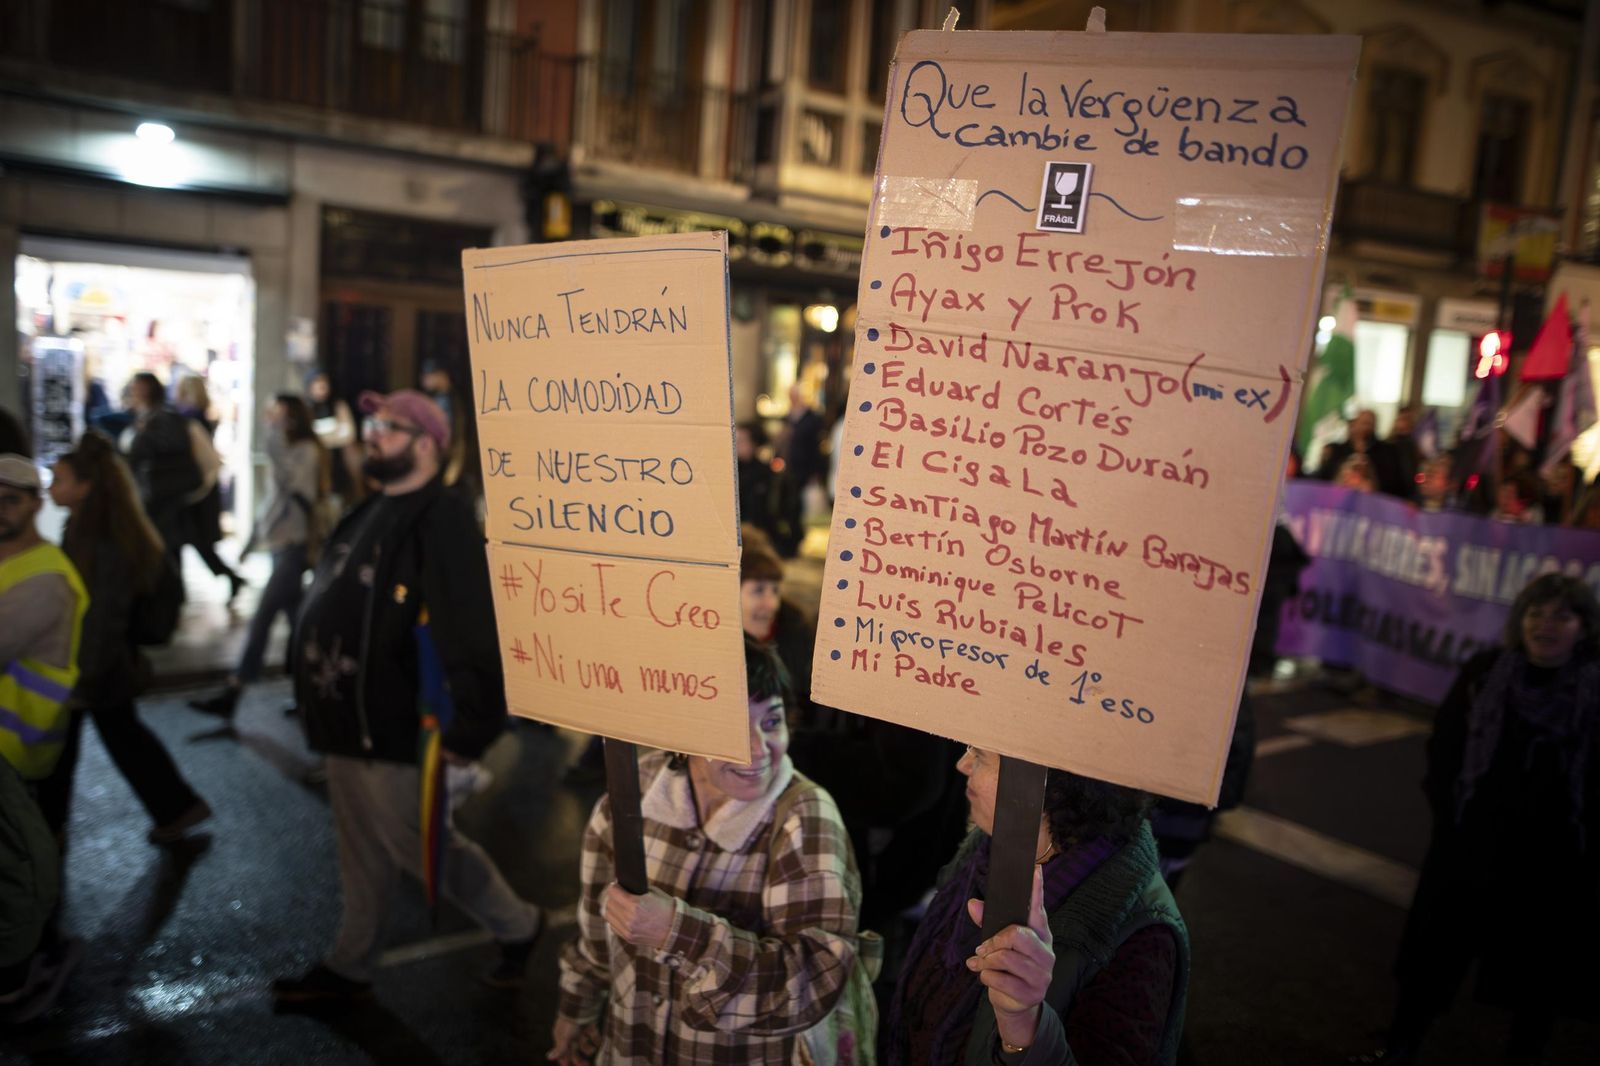 Que la Vergüenza
cambie de bando
FRÀGIL
• Iñigo Errejón
• Ayax y Prok
• David Naranjo (mi ex)
• Eduard Cortés
• Basilio Pozo Durán
• El Cigala
• Santiago Martín Barajas
• Bertín Osborne
• Dominique Pelicot
• Luis Rubiales
• Mi profesor de 1º eso
• Mi Padre
NUNCA TENDRÁN
LA COMODIDAD
DE NUESTRO
SILENCIO
#Yo si Te Creo
#Ni una menos
LIBRES, SIN